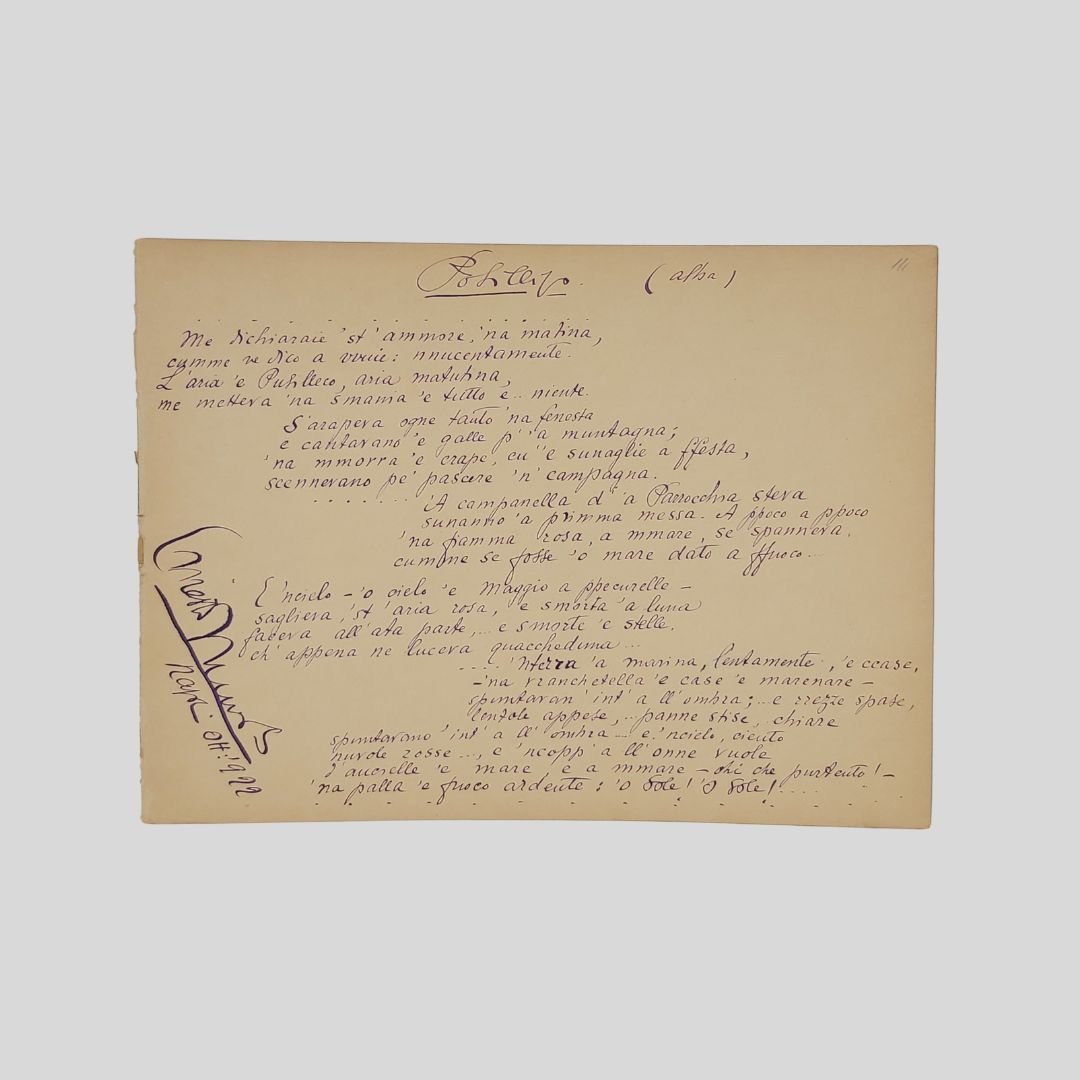 Posillipo. (alba)
14
. . . . . . . . . . . . .
Me dichiaraie 'st'ammore, 'na matina,
cumme ve dico a vvuie: nnucentamente.
L'aria 'e Pusilleco, aria matutina,
me metteva 'na smania 'e tutto e.. niente.
S'arapeva ogne tanto 'na fenesta
e cantavano 'e galle p' 'a muntagna;
'na mmorra 'e crape, cu 'e sunaglie a ffesta,
scennevano pe' pascere 'n' campagna.
. . . . . . . 'A campanella d' 'a Parrocchia steva
sunanno 'a primma messa. A ppoco a ppoco
'na fiamma rosa, a mmare, se spanneva,
cumme se fosse 'o mare dato a ffuoco...
E 'ncielo - 'o cielo 'e Maggio a ppecurelle -
saglieva, 'st'aria rosa, 'e smorta 'a luna
faceva all'ata parte,... e smorte 'e stelle,
ch'appena ne luceva quaccheduna...
.... 'Nterra 'a marina, lentamente, 'e ccase,
- 'na vranchetella 'e case 'e marenare -
spuntavan' int' a ll'ombra;... e rrezze spase,
lenzole appese,... panne stise, chiare
spuntavano 'int' a ll'ombra.... e, 'ncielo, ciento
nuvole rosse..., e 'ncopp' a ll'onne vuole
d'aucielle 'e mare, e a mmare - ohi che purtento! -
'na palla 'e fuoco ardente: 'o Sole! 'O Sole!....
. . . . . . . . . . . . .
Napoli - Ott: 922